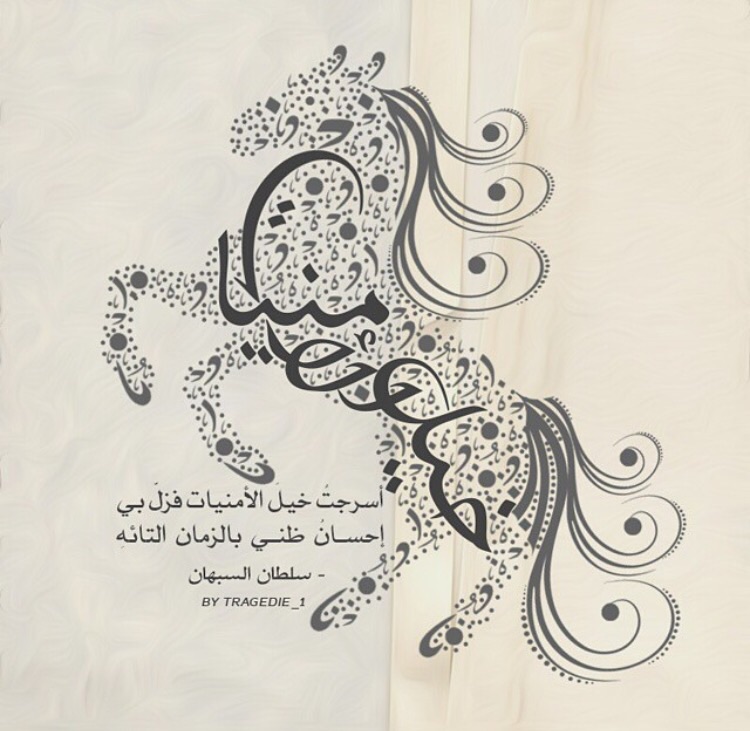 خيل الأمنيات
أسرجتُ خيلَ الأمنيات فزلَ بي
إحسـانُ ظنـي بالزمان التائهِ
- سلطان السبهان
BY TRAGEDIE_1